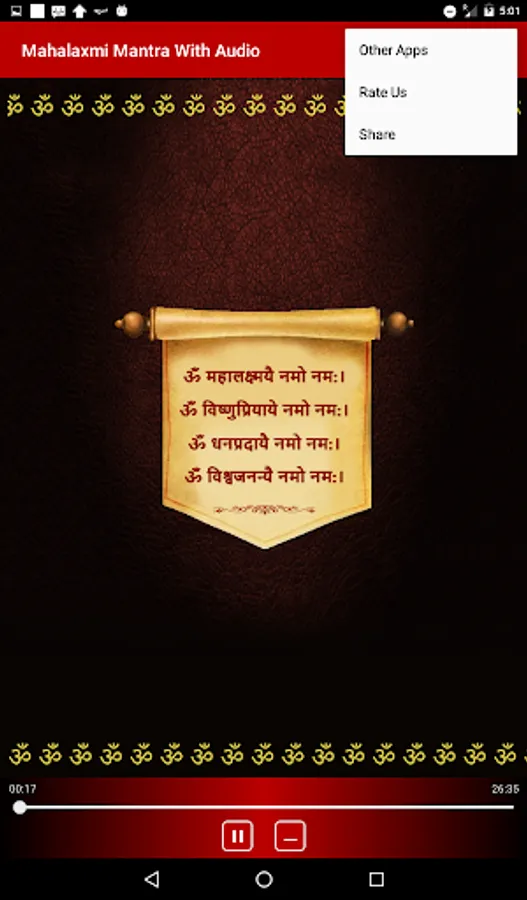 5:01
Mahalaxmi Mantra With Audio
Other Apps
Rate Us
Share
ॐ ॐ ॐ ॐ ॐ ॐ ॐ ॐ ॐ ॐ ॐ
ॐ महालक्ष्मयै नमो नमः।
ॐ विष्णुप्रियाये नमो नमः।
ॐ धनप्रदायै नमो नमः।
ॐ विश्वजनन्यै नमो नमः।
ॐ ॐ ॐ ॐ ॐ ॐ ॐ ॐ ॐ ॐ ॐ ॐ ॐ ॐ ॐ ॐ ॐ
00:17 26:35